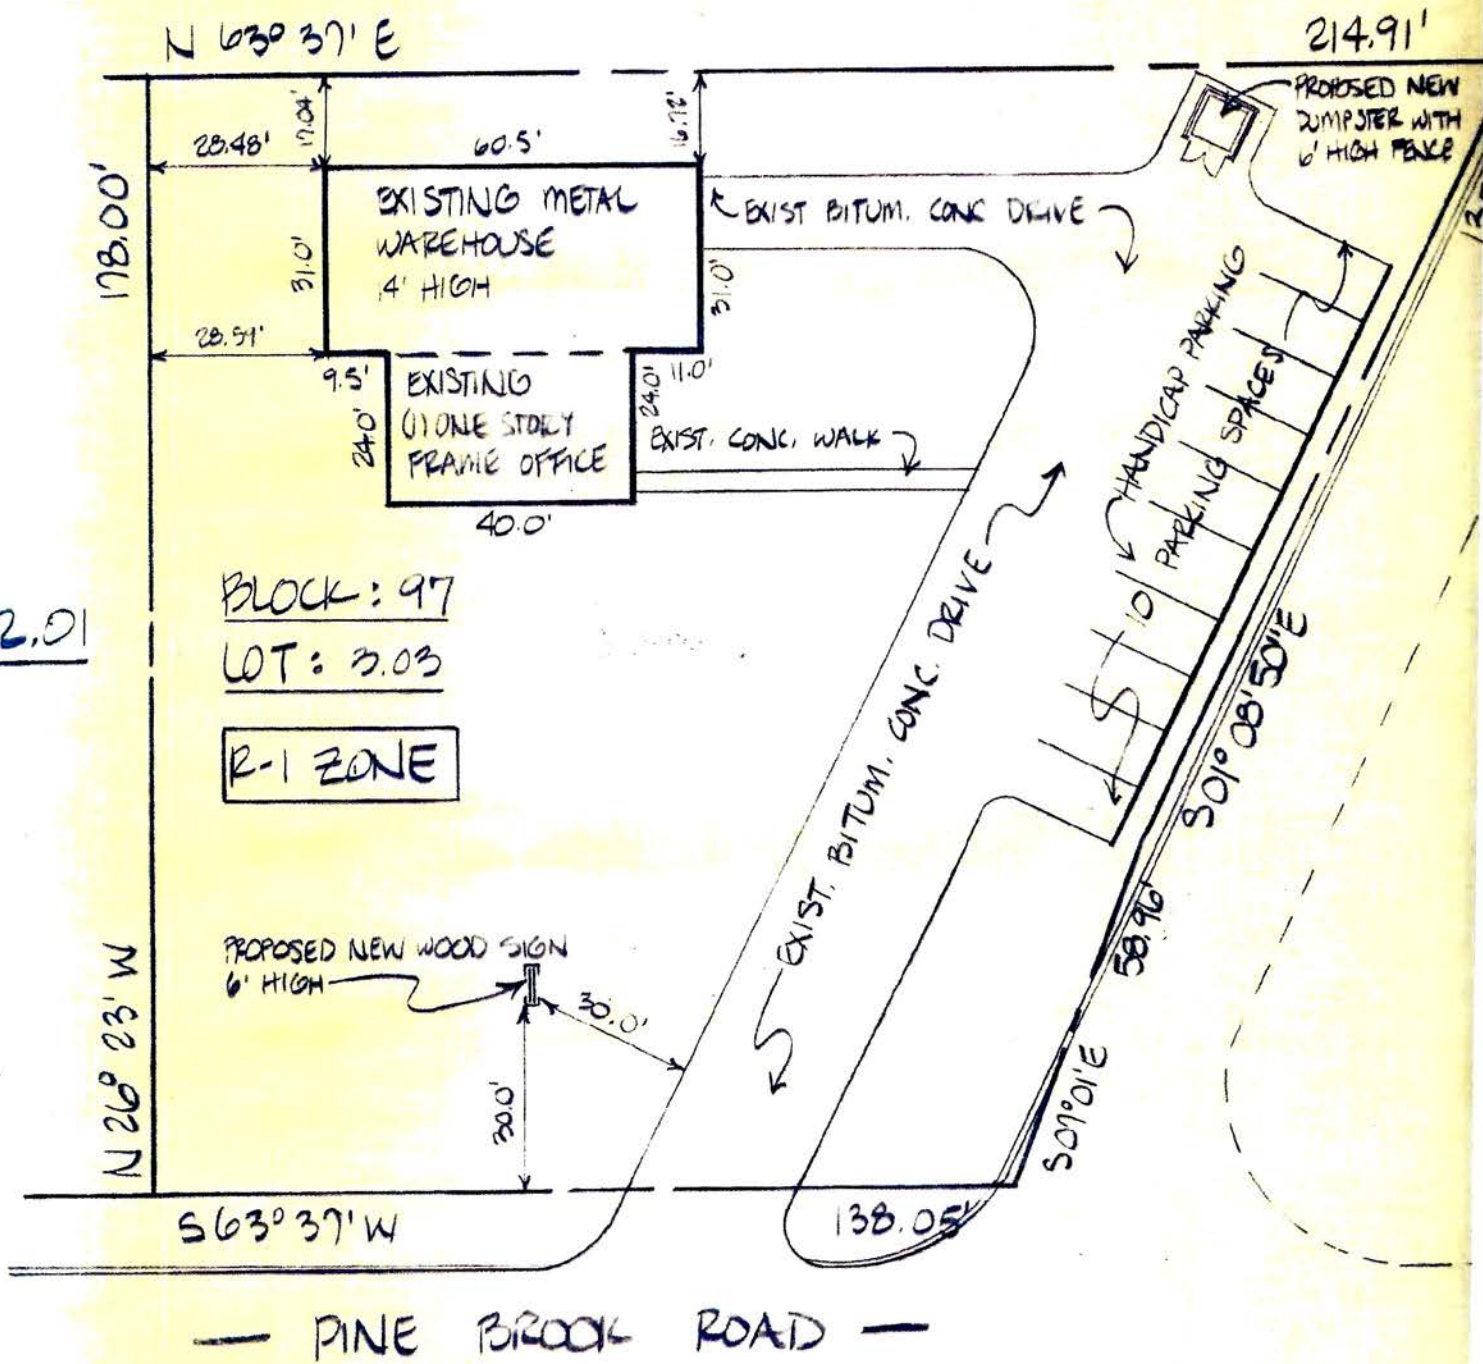 N 63° 37' E
214.91'
PROPOSED NEW
DUMPSTER WITH
6' HIGH FENCE
17.04'
16.72'
28.48'
60.5'
178.00'
EXISTING METAL
WAREHOUSE
14' HIGH
EXIST BITUM. CONC DRIVE
31.0'
31.0'
28.59'
9.5'
11.0'
24.0'
24.0'
EXISTING
(1) ONE STORY
FRAME OFFICE
EXIST. CONC. WALK
40.0'
HANDICAP PARKING
10 PARKING SPACES
2.01
BLOCK: 97
LOT: 3.03
R-1 ZONE
EXIST. BITUM. CONC. DRIVE
S01° 08' 50" E
58.96'
PROPOSED NEW WOOD SIGN
6' HIGH
30.0'
30.0'
N 26° 23' W
S07° 01' E
S 63° 37' W
138.05'
— PINE BROOK ROAD —